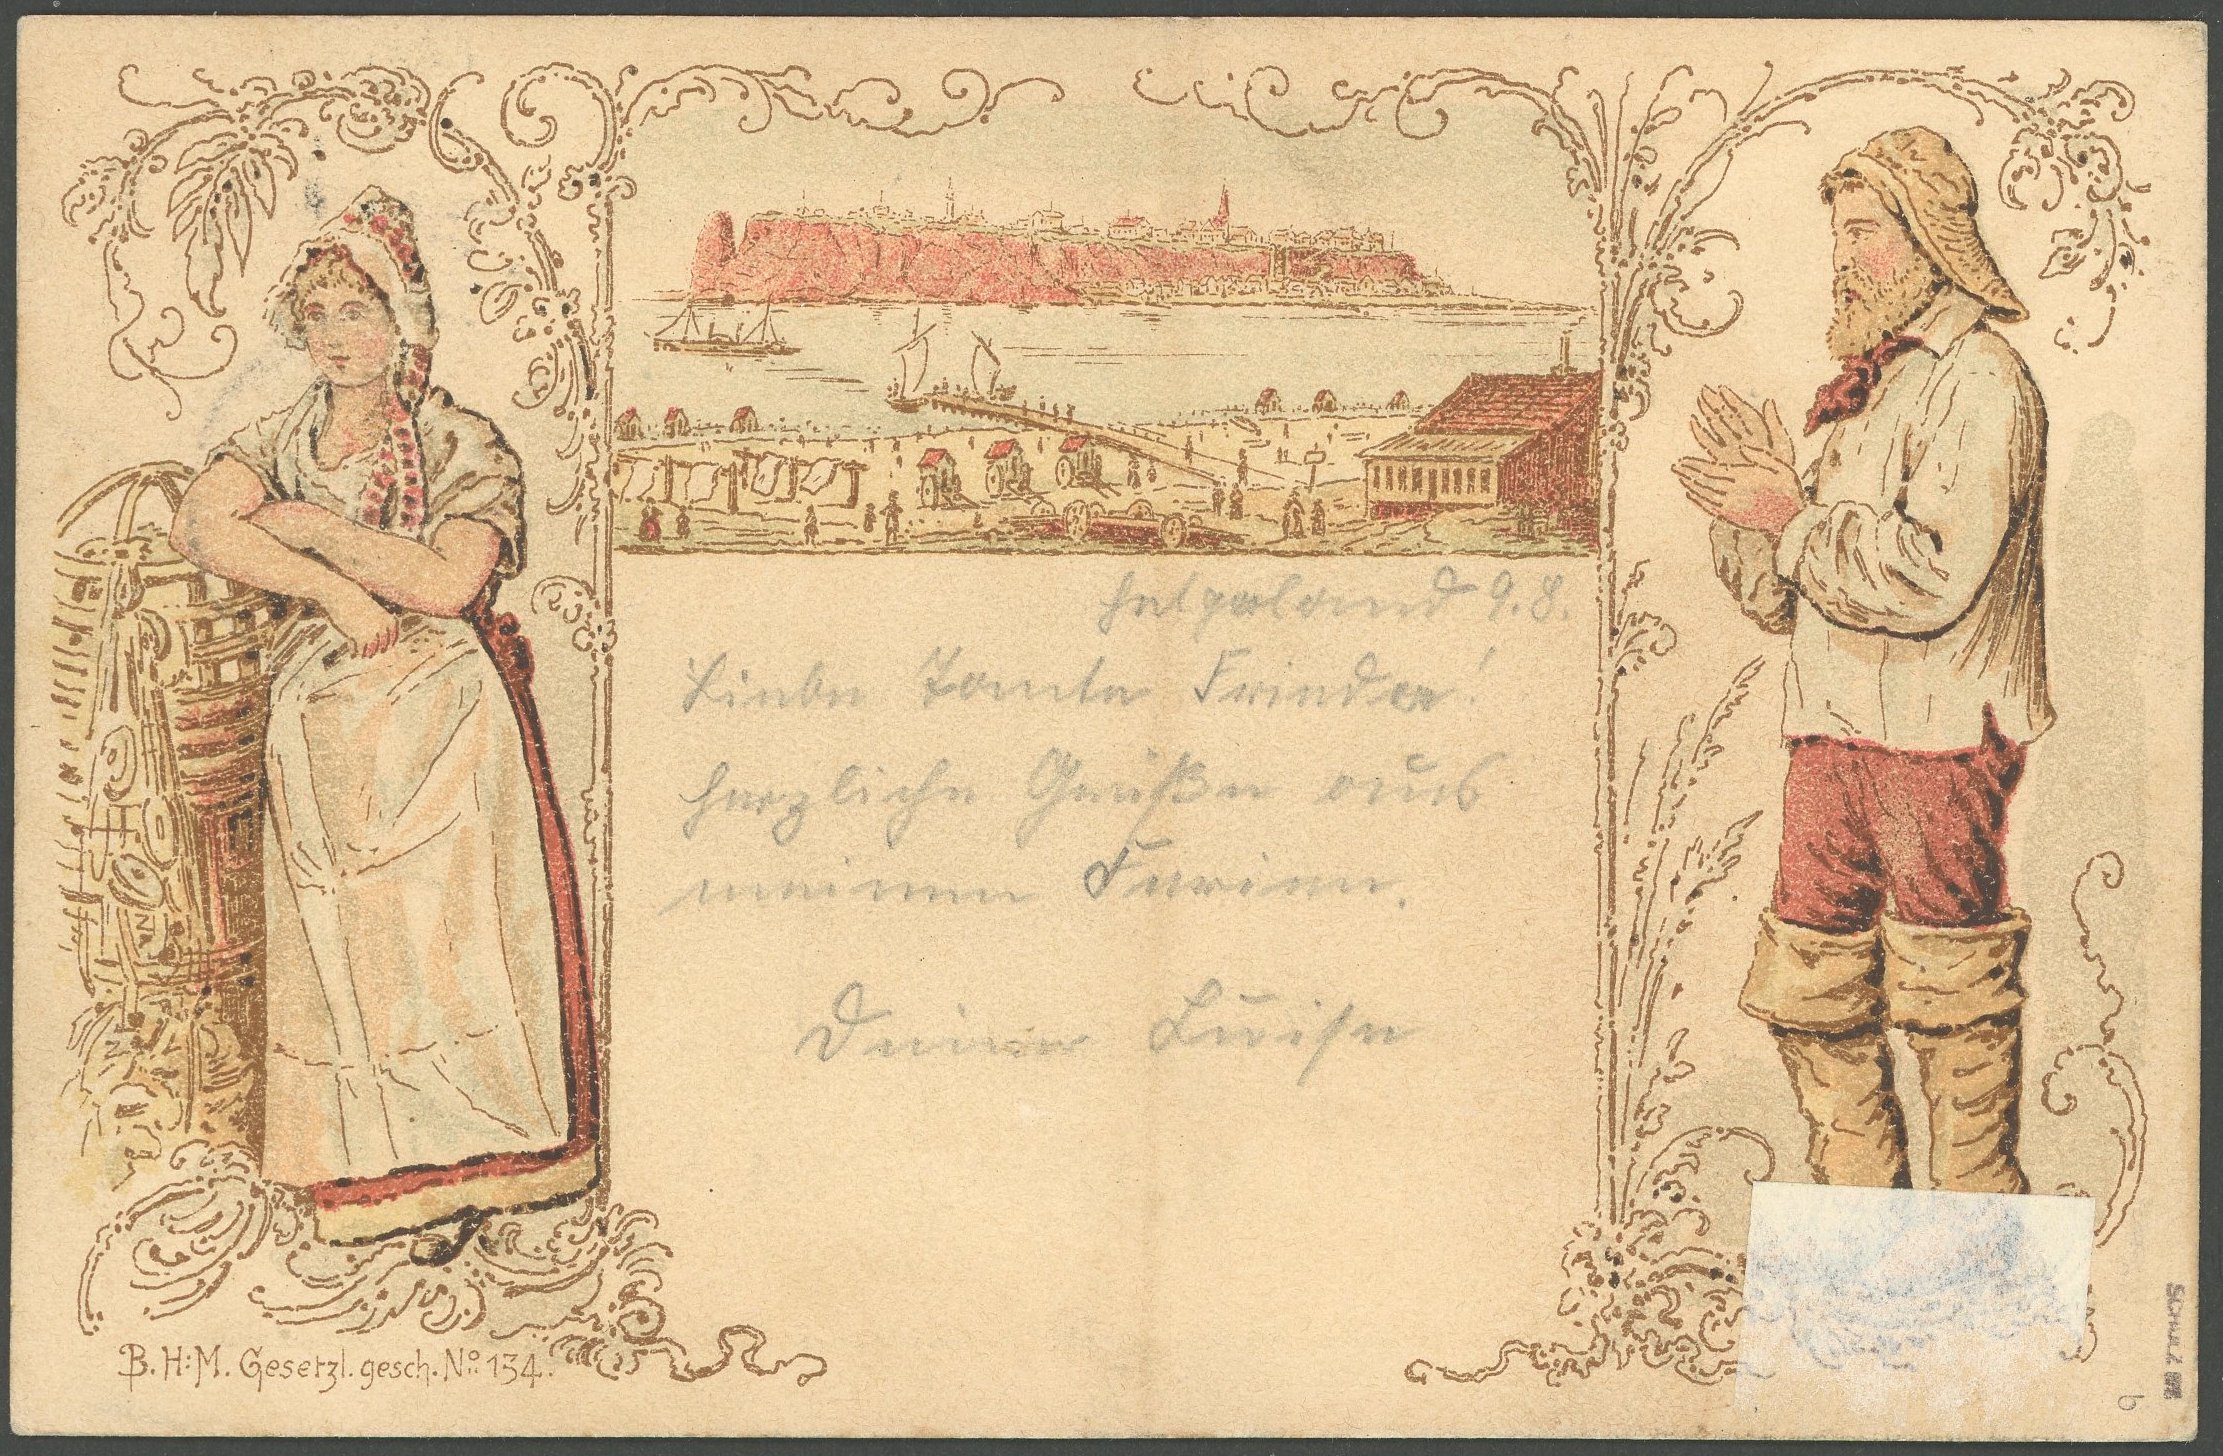 Helgoland 9.8.
Liebe Tante Frieda!
herzliche Grüße aus
meinen Ferien.
Deine Luise
B. H: M. Gesetzl. gesch. No 134.
SCHULZ
6